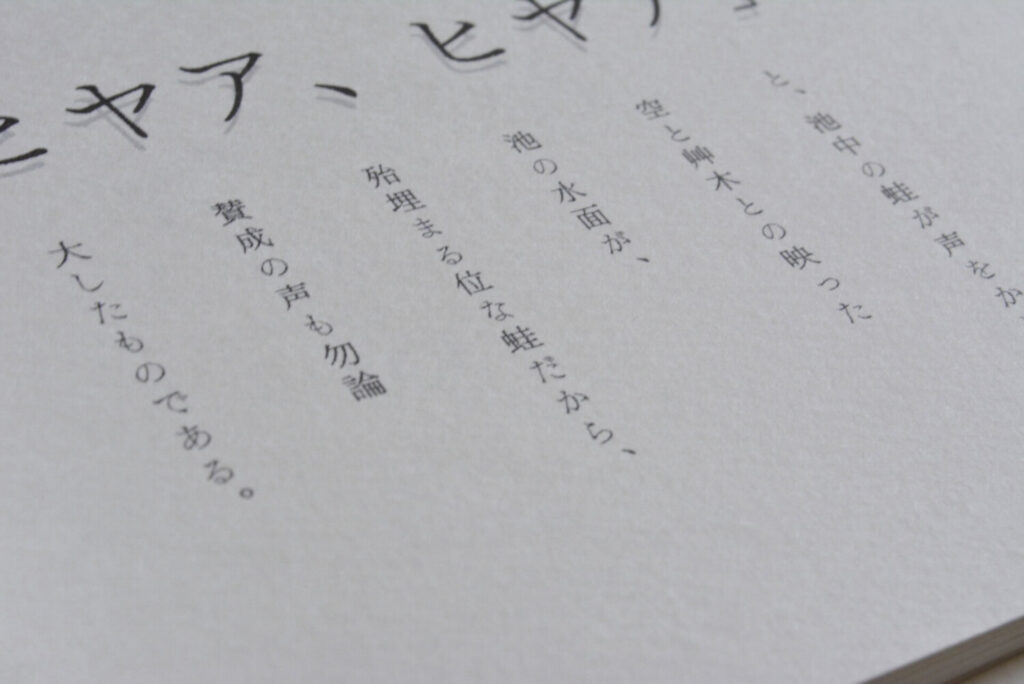 ヒヤア、ヒヤ
と、池中の蛙が声をか
空と艸木との映った
池の水面が、
殆埋まる位な蛙だから、
賛成の声も勿論
大したものである。